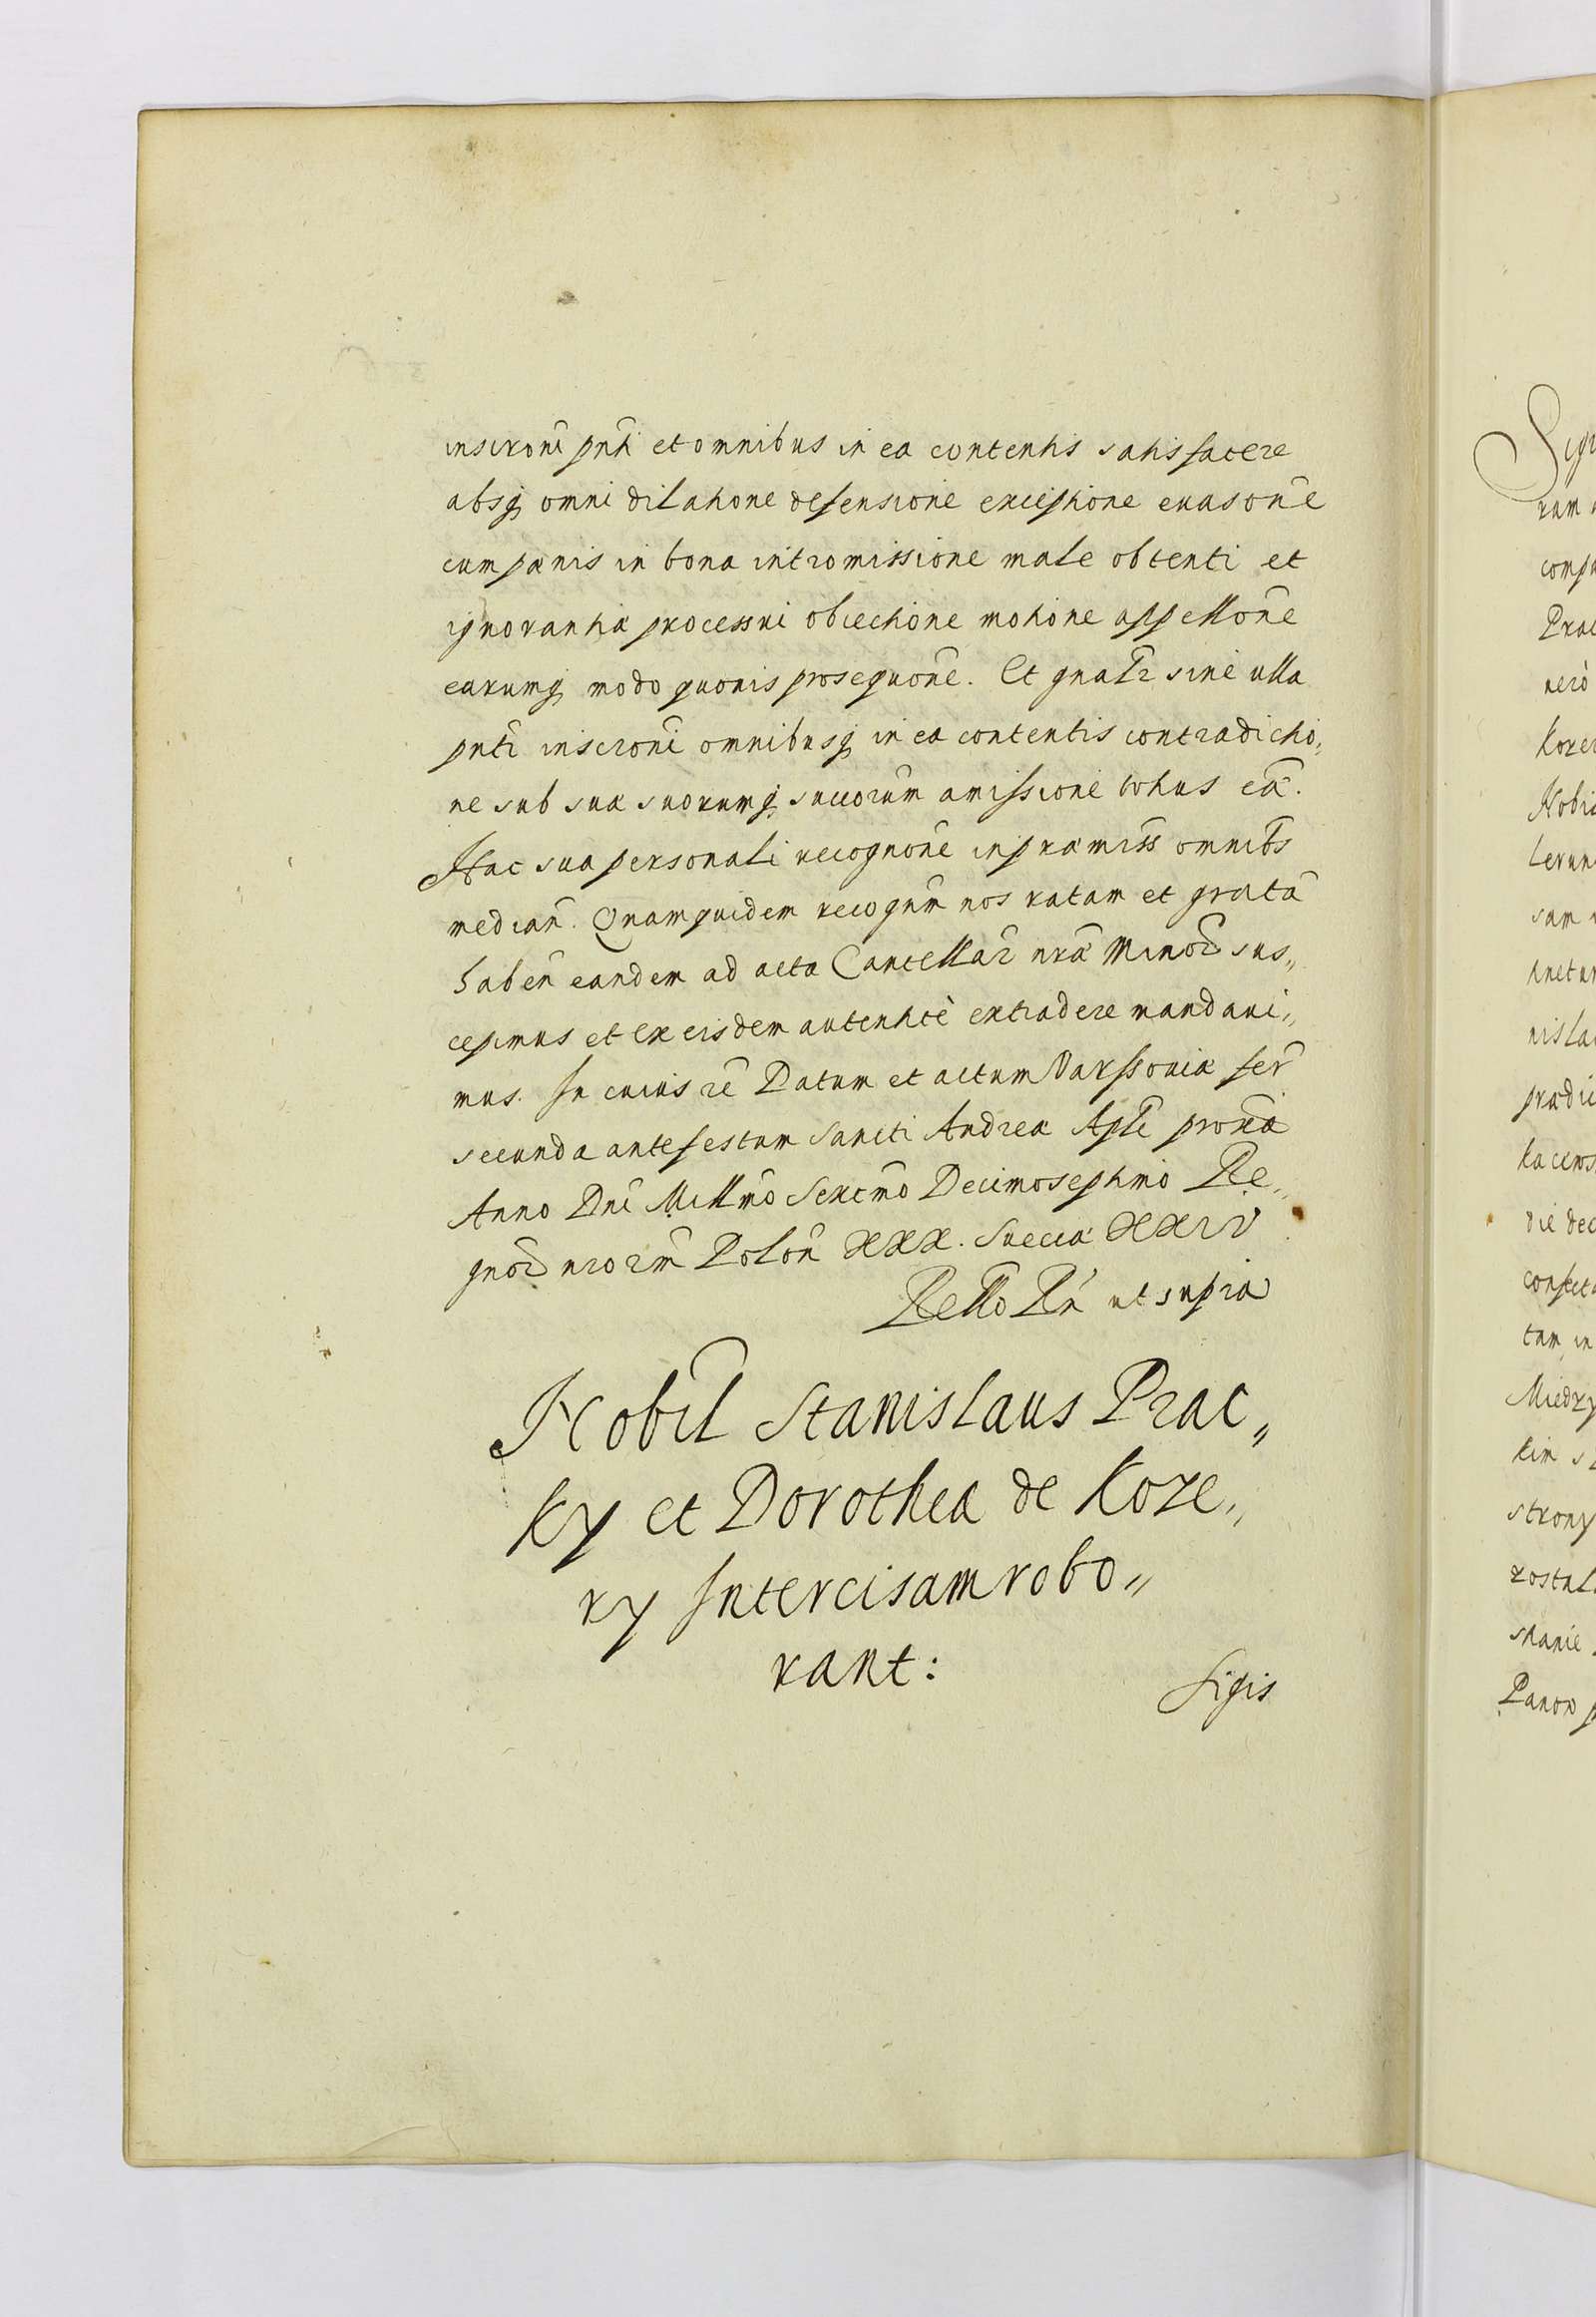 inscrōni pn̄ti et omnibus in ea contentis satisfacere
absq̨ omni dilatione defensione exceptione evasōne
cum pænis in bona intromissione male obtenti et
ignorantiæ processui obiectione motione appellōne
earumq̨ modo quovis prosequōne. Et gnalr̄ sine ulla
pn̄ti inscronī omnibusq̨ in ea contentis contradictio„
ne sub sua suorumq̨ succorūm amissione totius cā.
Hac sua personali recognōne in præmiss̄ omnib̄s
median̄. Quamquidem recogn̄m nos ratam et gratā
haben̄ eandem ad acta Cancellar̄ nr̄æ Minor̄ sus„
cepimus et ex eisdem autenticè extradere mandavi„
mus. In cuius rē Datum et actum Varssoviæ fer̄
secunda ante festum Sancti Andreæ Apl̄i proxīa
Anno Dn̄i Millm̄o Sexcm̄o Decimoseptimo Re„
gnor̄ nrorm̄ Polon̄ XXX. Sueciæ XXIV
Rello Rn̄ ut supra
Nobil̄ Stanislaus Prac„
ky et Dorothea de Koze„
ry Intercisam robo„
rant:
Sigis
Sigi
rum
comp
Prac
verò
Kozer
Nobi
lerun
sam
nisla
prædic
die dec
tam in
Miedzy
kim s
strony
Panow p